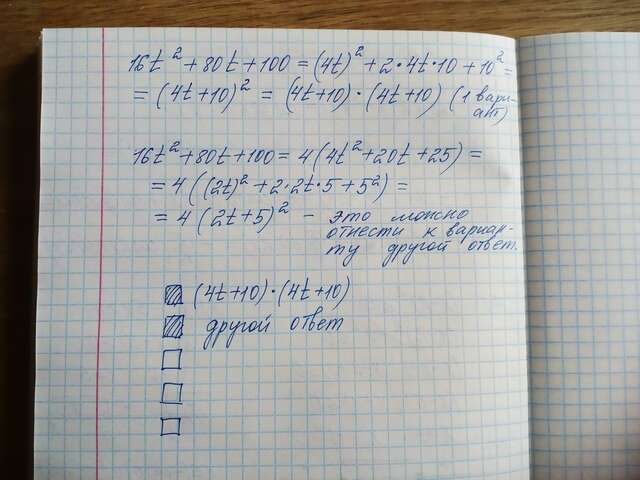 16t² + 80t + 100 = (4t)² + 2·4t·10 + 10² =
= (4t+10)² = (4t+10)·(4t+10) (1 вари-
ант)
16t² + 80t + 100 = 4(4t² + 20t + 25) =
= 4((2t)² + 2·2t·5 + 5²) =
= 4(2t+5)² – это можно
отнести к вариан-
ту другой ответ.
(4t+10)·(4t+10)
другой ответ